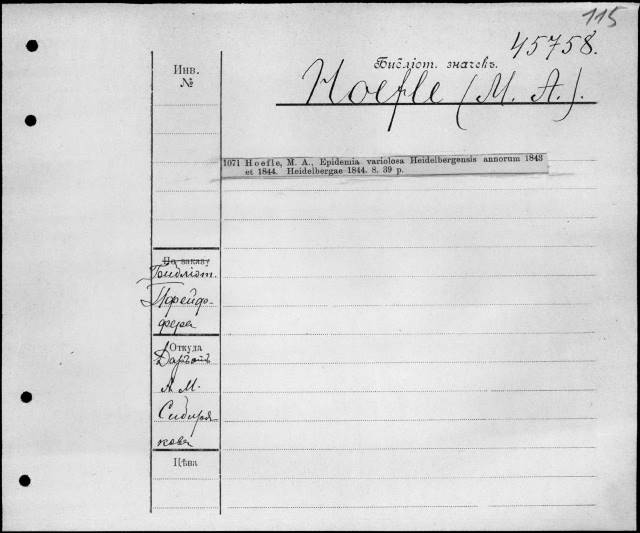 115
45758.
Инв.
№
Библіот. значекъ.
Hoefle (M. A.).
1071 Hoefle, M. A., Epidemia variolosa Heidelbergensis annorum 1843
et 1844. Heidelbergae 1844. 8. 39 p.
По заказу
Библіот.
Пфейф-
фера
Откуда
А. М.
Сибиря-
кова
Цѣна